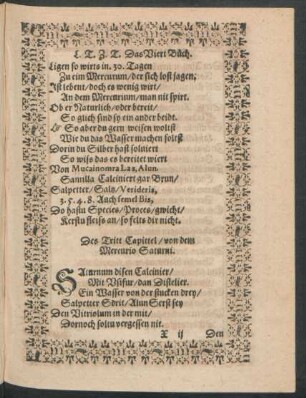 L. T. Z. T. Das Viert Büch.
Ligen so wirts in. 30. Tagen
Zu eim Mercurum / der sich lost jagen;
Ist lebent / doch es wenig wirt /
An dem Mercurium / man nit spirt.
Ob er Naturlich / oder bereit /
So glich sind sy ein ander beidt.
So aber du gern weisen woltst
Wie du das Wasser machen soltst
Dorin du Silber hast soluiert
So wiss das es bereitet wiert
Von Mucainomra Lax, Alun.
Samilla Calciniert gar Brun /
Salpetter / Saltz / Verideris,
3. 5. 4. 8. Auch semel bis,
Do hastu Species / Proces / gwicht /
Kerstu fleiss an / so felts dir nicht.
Des Dritt Capittel / von dem
Mercurio Saturni.
SAturnum disen Calcinier /
Mit Vsifur / dan Distelier.
Ein Wasser von der stucken drey /
Salpetter Sdrit / Alun Serst sey
Den Vitriolum in der mit /
Dornoch soltu vergessen nit.
X ij
Den